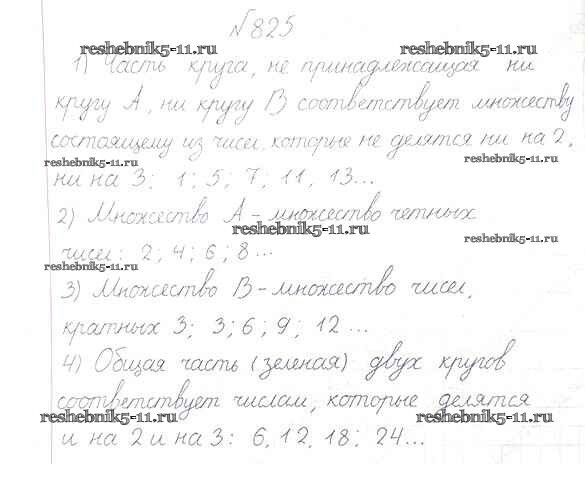 №825
reshebnik5-11.ru reshebnik5-11.ru
1) Часть круга, не принадлежащая ни
кругу А, ни кругу В соответствует множеству
состоящему из чисел, которые не делятся ни на 2,
reshebnik5-11.ru reshebnik5-11.ru
ни на 3; 1; 5; 7; 11, 13...
2) Множество А - множество четных
reshebnik5-11.ru reshebnik5-11.ru
чисел: 2; 4; 6; 8...
reshebnik5-11.ru
3) Множество В - множество чисел,
кратных 3; 3; 6; 9; 12...
4) Общая часть (зеленая) двух кругов
соответствует числам, которые делятся
reshebnik5-11.ru reshebnik5-11.ru
и на 2 и на 3: 6, 12, 18; 24...